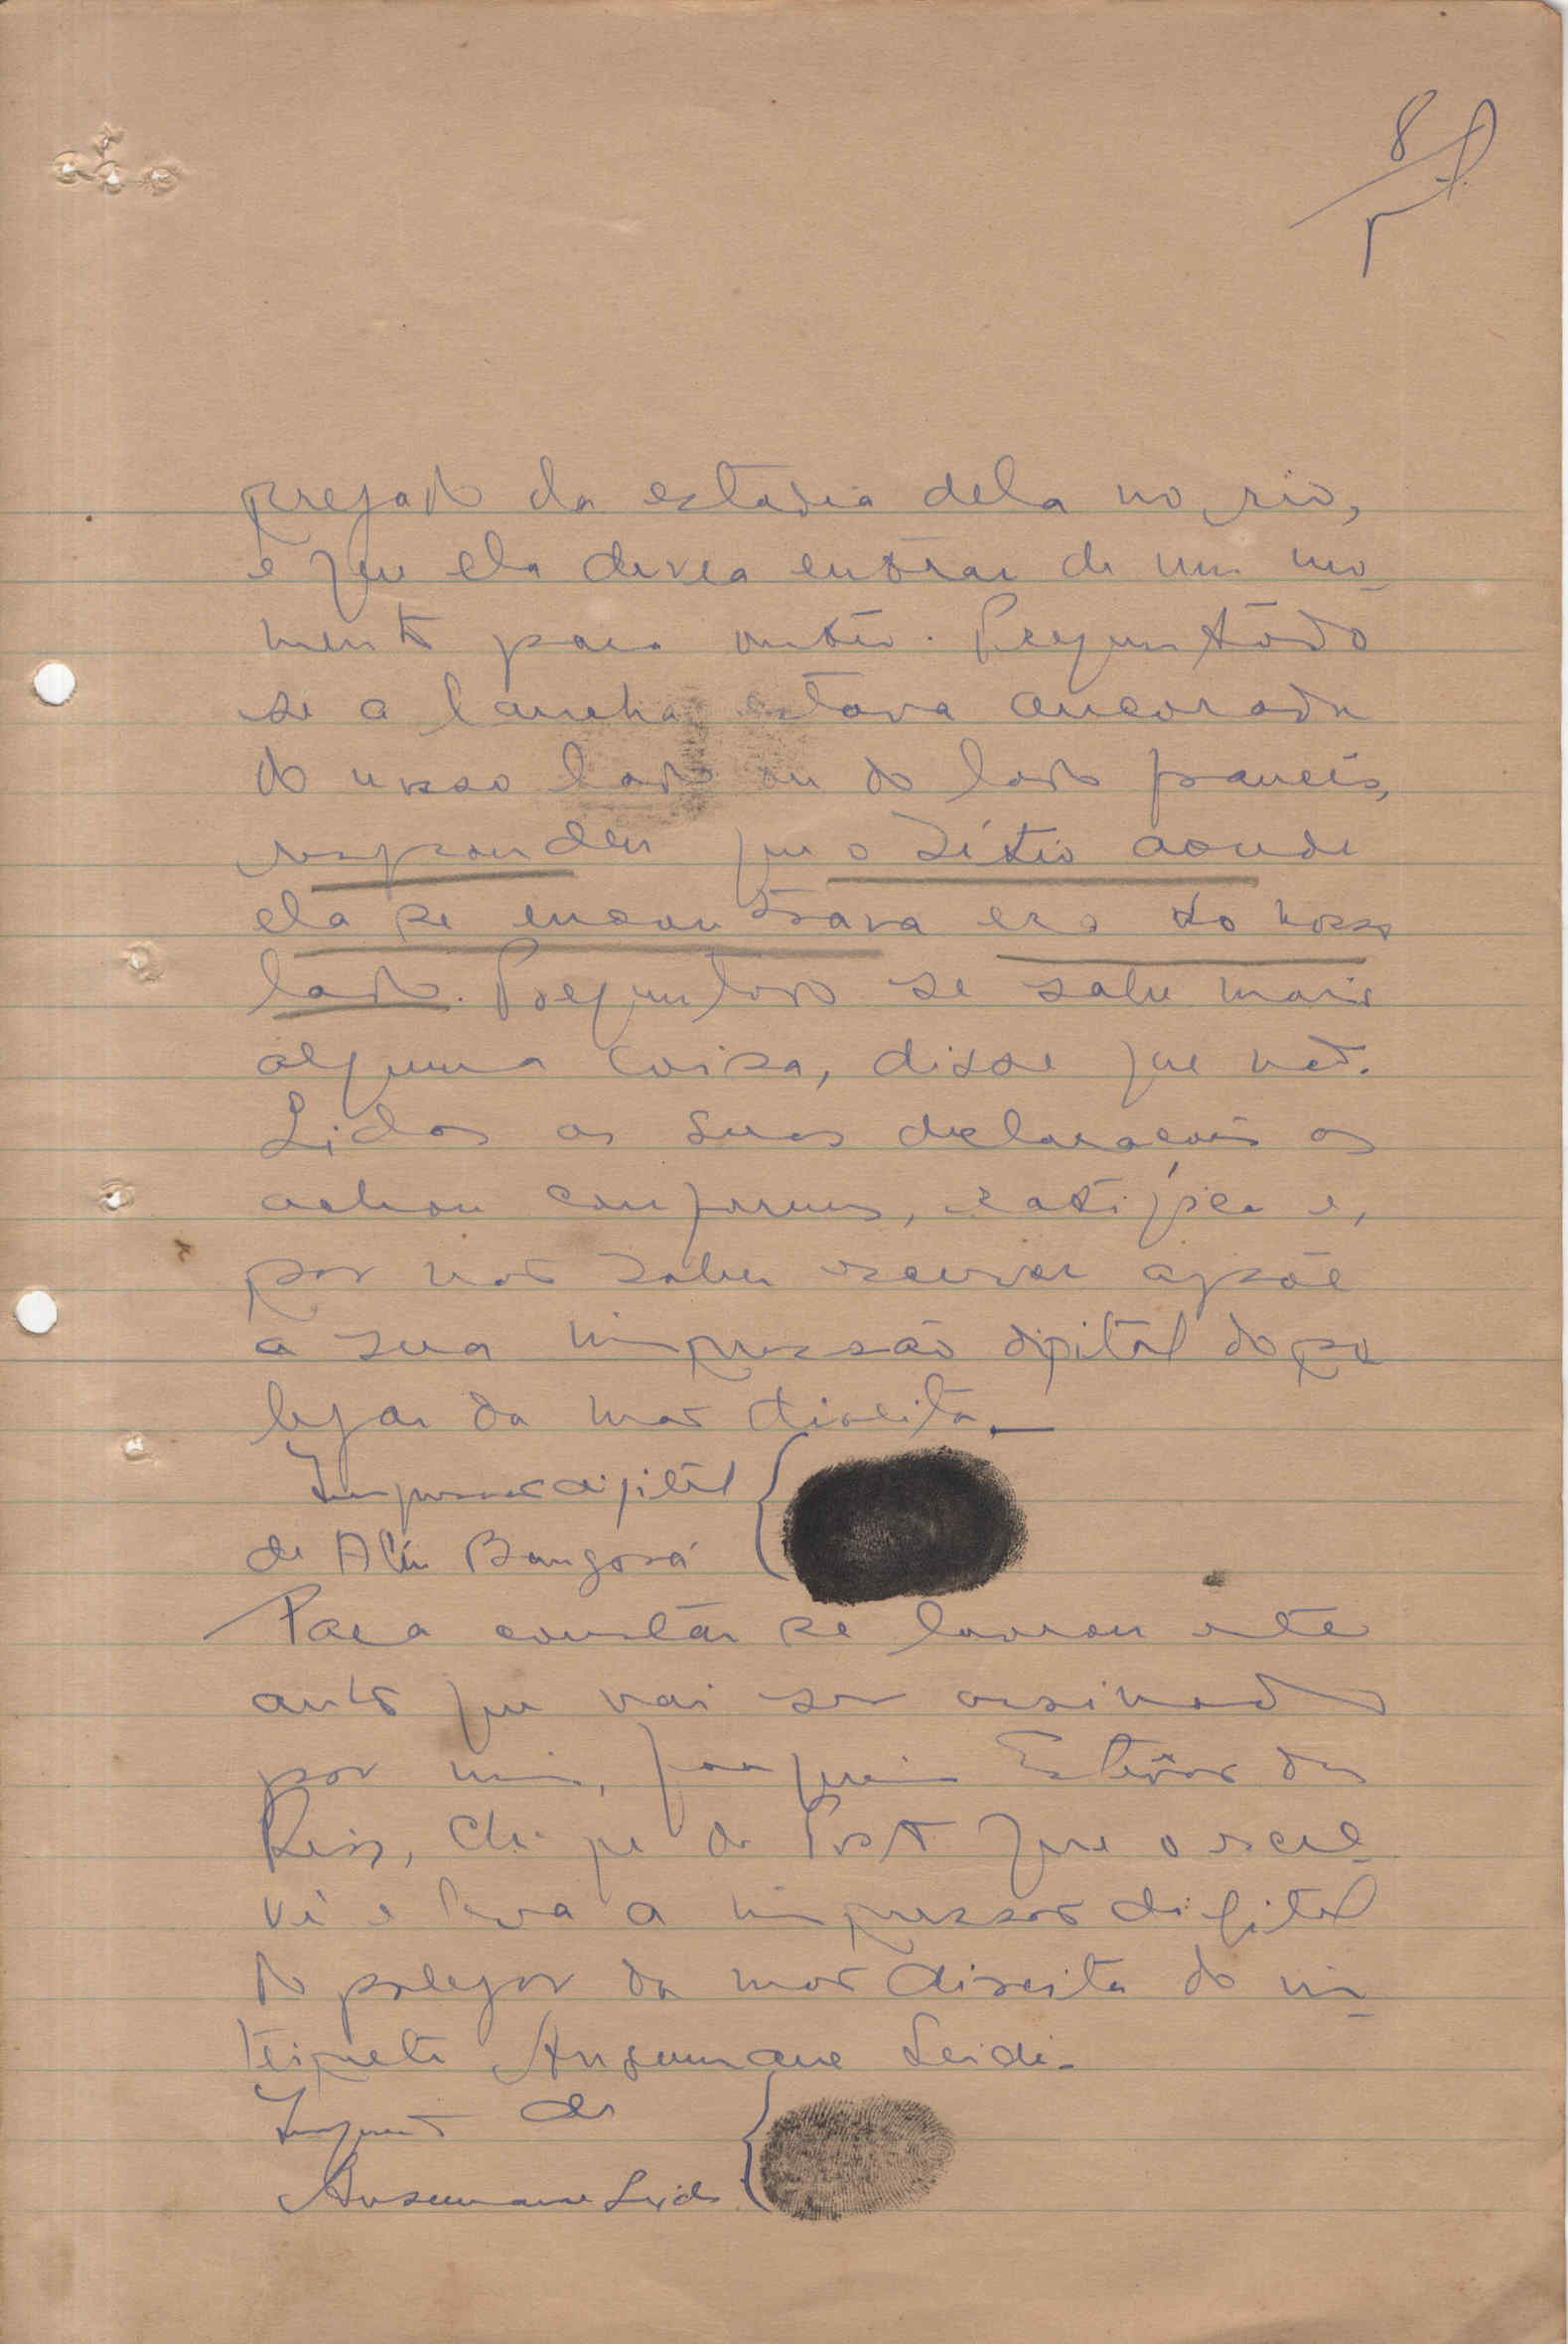 8
pregado da estadia dela no rio,
e que ela devia entrar de um mo-
mento para outro. Preguntádo
se a lancha estava ancorada
do nosso lado ou do lado francês,
respondeu que o sitio aonde
ela se encontrava era do nosso
lado. Preguntado se sabe mais
alguma coisa, disse que não.
Lidas as suas declarações as
achou conformes, ratifica e,
por não saber escrever apõe
a sua impressão digitál do po-
legar da mão direita.
Impressão digitál
de Bangorá
Para constár se lavrou este
auto que vai ser assinado
por mim, Joaquim dos
Reis, Chefe do Posto que o escre-
vi e leva a impressão digital
do polegar da mão direita do in-
térprete Ansumane Seidi.
de
Ansumane Seidi